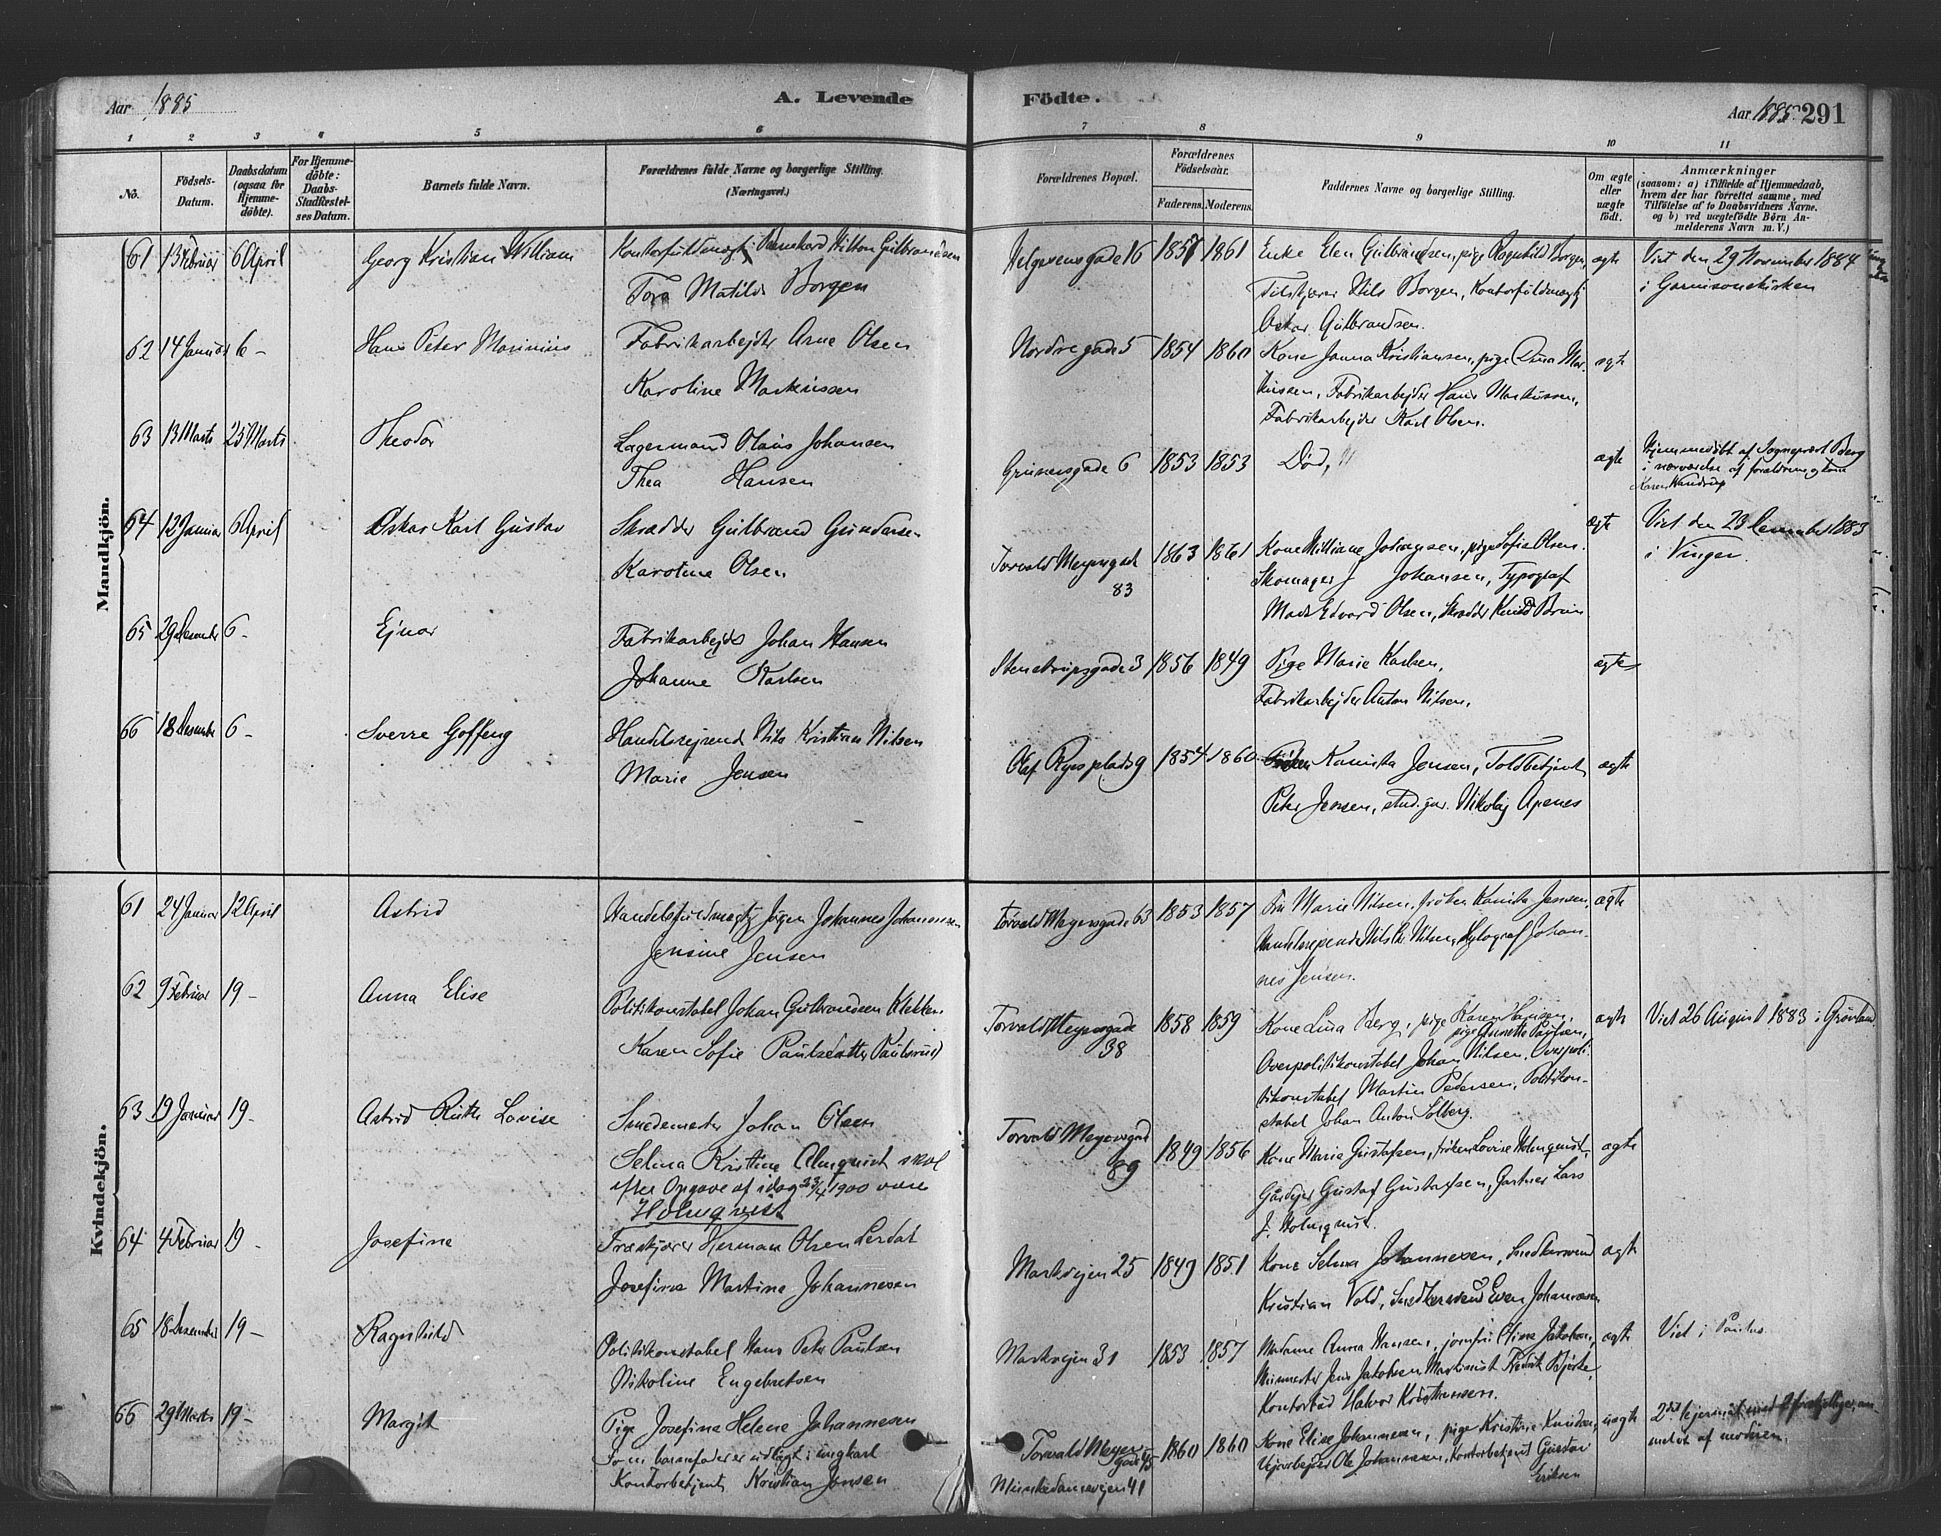 Aar 1885
A. Levende
Födte.
Aar 1885
291
1 2 3 4 5 6 7 8 9 10 11
No.
Födsels-
Datum.
Daabsdatum
(ogsaa for
Hjemme-
döbte).
For Hjemme-
döbte:
Daabs-
Stadfæstel-
ses Datum.
Barnets fulde Navn.
Forældrenes fulde Navne og borgerlige Stilling.
(Næringsvei.)
Forældrenes Bopæl.
Forældrenes
Födselsaar.
Faderens. Moderens.
Faddernes Navne og borgerlige Stilling.
Om ægte
eller
uægte
födt.
Anmærkninger
(saasom: a) i Tilfælde af Hjemmedaab,
hvem der har forrettet samme, med
Tilföielse af to Daabsvidners Navne.
og b) ved uægtefödte Börn An-
melderens Navn m. V.)
Mandkjön.
61 13 Februar 6 April Georg Kristian William Kontorfuldmægtig Hilton Gulbrandsen
Tora Matilde Borgen
Helgesensgade 16 1857 1861 Enke Elen Gulbrandsen, pige Ragnhild Borgen,
Nils Borgen, Kontorfuldmægtig
Oskar Gulbrandsen.
ægte
Viet den 29 November 1884
i Garnisonskirken
62 14 Januar 6 - Hans Peter Marinius Fabrikarbejder Arne Olsen
Karoline Markussen
Nordregade 5 1854 1860 Kone Janna Kristiansen, pige Anna Mar-
kussen, Fabrikarbejder Hans Markussen,
Fabrikarbejder Karl Olsen.
ægte
63 13 Marts 25 Marts Theodor Lagermand Olaus Johansen
Thea Hansen
Grünersgade 6 1853 1853 Död,
ægte
Hjemmedöbt af Sogneprest Berg
i nærværelse af forældrene og kone
Karen
64 12 Januar 6 April Oskar Karl Gustav Skrædder Gulbrand Gundersen
Karoline Olsen
Torvald Meyersgade
83
1863 1861 Kone Milliane Johansen, pige Sofie Olsen.
Skomager J Johansen, Typograf
Mads Edvard Olsen, Skrædder Knud Bruun
ægte
Viet den 23 December 1883
i Vinger.
65 29 Desember 6 - Ejnar Fabrikarbejder Johan Hansen
Johanne Karlsen
Stenstrupsgade 3 1856 1849 Pige Marie Karlsen,
Fabrikarbejder Anton Nilsen.
ægte
66 18 Desember 6 - Sverre Goffeng Handelsrejsende Nils Kristian Nilsen
Marie Jensen
Olaf Ryesplads 9 1854 1860 Fröken Kamista Jensen, Toldbetjent
Peter Jensen, stud. jur. Nikolaj Apenes
ægte
Kvindekjön.
61 24 Januar 12 April Astrid Handelsfuldmægtig Jörgen Johannes Johannesen
Jensine Jensen
Torvald Meyersgade 63 1853 1857 Fru Marie Nilsen, fröken Kamista Jensen,
Handelsrejsende Nils Kr Nilsen, Xylograf Johan-
nes Jensen.
ægte
62 9 Februar 19 - Anna Elise Politikonstabel Johan Gulbrandsen Klekken
Karen Sofie Paulsdatter Paulsrud
Torvald Meyersgade
38
1858 1859 Kone Lina Berg, pige Karen Hansen,
pige Annette Paulsen,
Overpolitikonstabel Johan Nilsen, Overpoli-
tikonstabel Martin Pedersen, Politikon-
stabel Johan Anton Solberg.
ægte
Viet 26 August 1883 i Grönland
63 19 Januar 19 - Astrid Ruth Lovise Smedemester Johan Olsen
Selma Kristine Almqvist skal
efter Opgave af idag 23/4 1900 være
Holmqvist
Torvald Meyersgad
89
1849 1856 Kone Marie Gustafsen, fröken Lovise Holmqvist,
Gårdejer Gustaf Gustafsen, Gartner Lars
J. Holmqvist.
ægte
64 4 Februar 19 - Josefine Træskjærer Herman Olsen Lerdal
Josefine Martine Johannesen
Markvejen 25 1849 1851 Kone Selma Johannesen, Snedkersvend
Kristian Vold, Snedkersvend Even Johannesen
ægte
65 18 Desember 19 - Ragnhild Politikonstabel Hans Peter Paulsen
Nikoline Engebretsen
Markvejen 31 1853 1857 Madame Anna Hansen, jomfru Eline Jakobsen,
Jens Jakobsen, Maskinist Fredrik Bjerke,
Kontorbud Halvor Kristiansen.
ægte
Viet i Paulus
66 29 Marts 19 - Margit Pige Josefine Helene Johannesen
Som barnefader er udlagt ungkarl
Kontorbetjent Kristian Jensen
Torvald Meyers
gade 45
Munkedamsvejen 41
1860 1860 Kone Elise Johannesen, pige Kristine Knudsen,
Vejarbejder Ole Johannesen, Kontorbetjent Gustav
Eriksen
uægte
2det lejermål med 2 forskjellige, an-
meldt af moderen.